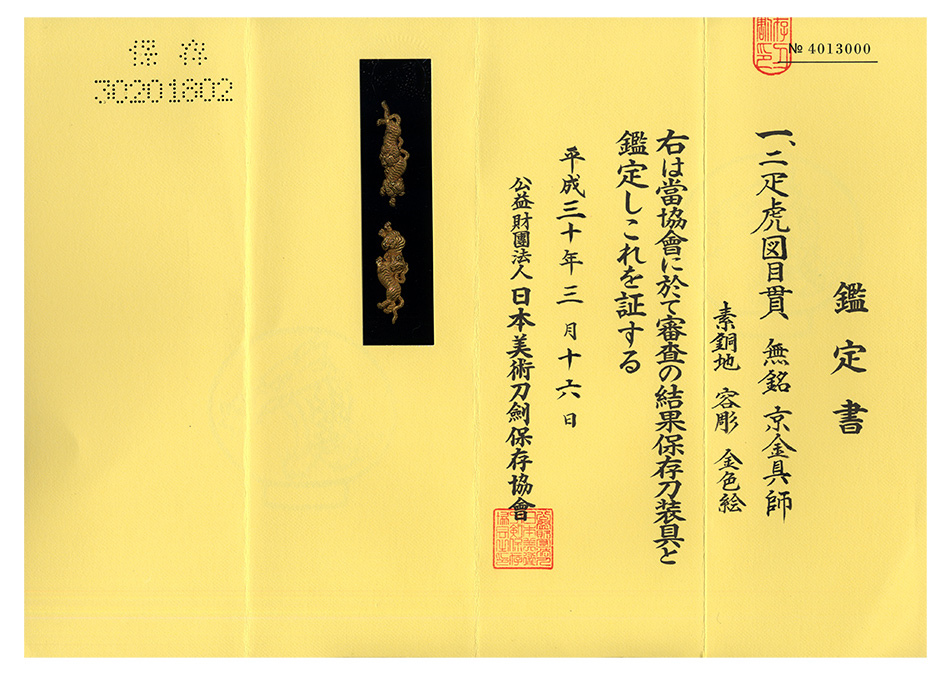 № 4013000
鑑定書
一、二疋虎図目貫 無銘 京金具師
素銅地 容彫 金色絵
右は當協會に於て審査の結果保存刀装具と
鑑定しこれを証する
平成三十年三月十六日
公益財團法人 日本美術刀劍保存協會
保存
30201802